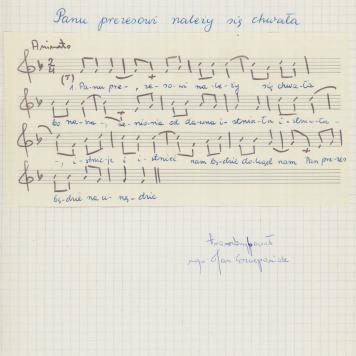 Panu prezesowi należy się chwała
Animato
2 4
1. Pa-nu pre-, ze-so-wi na-le-ży się chwa-ła
bo na-na-, ze-nio-nia od da-wna i-stnia-ła i-stnia-ła-
, i-stnie-je i i-stnieć nam bę-dzie do-kąd nam Pan pre-zes
bę-dzie na u-rzę-dzie
transkrybował
mgr Jan